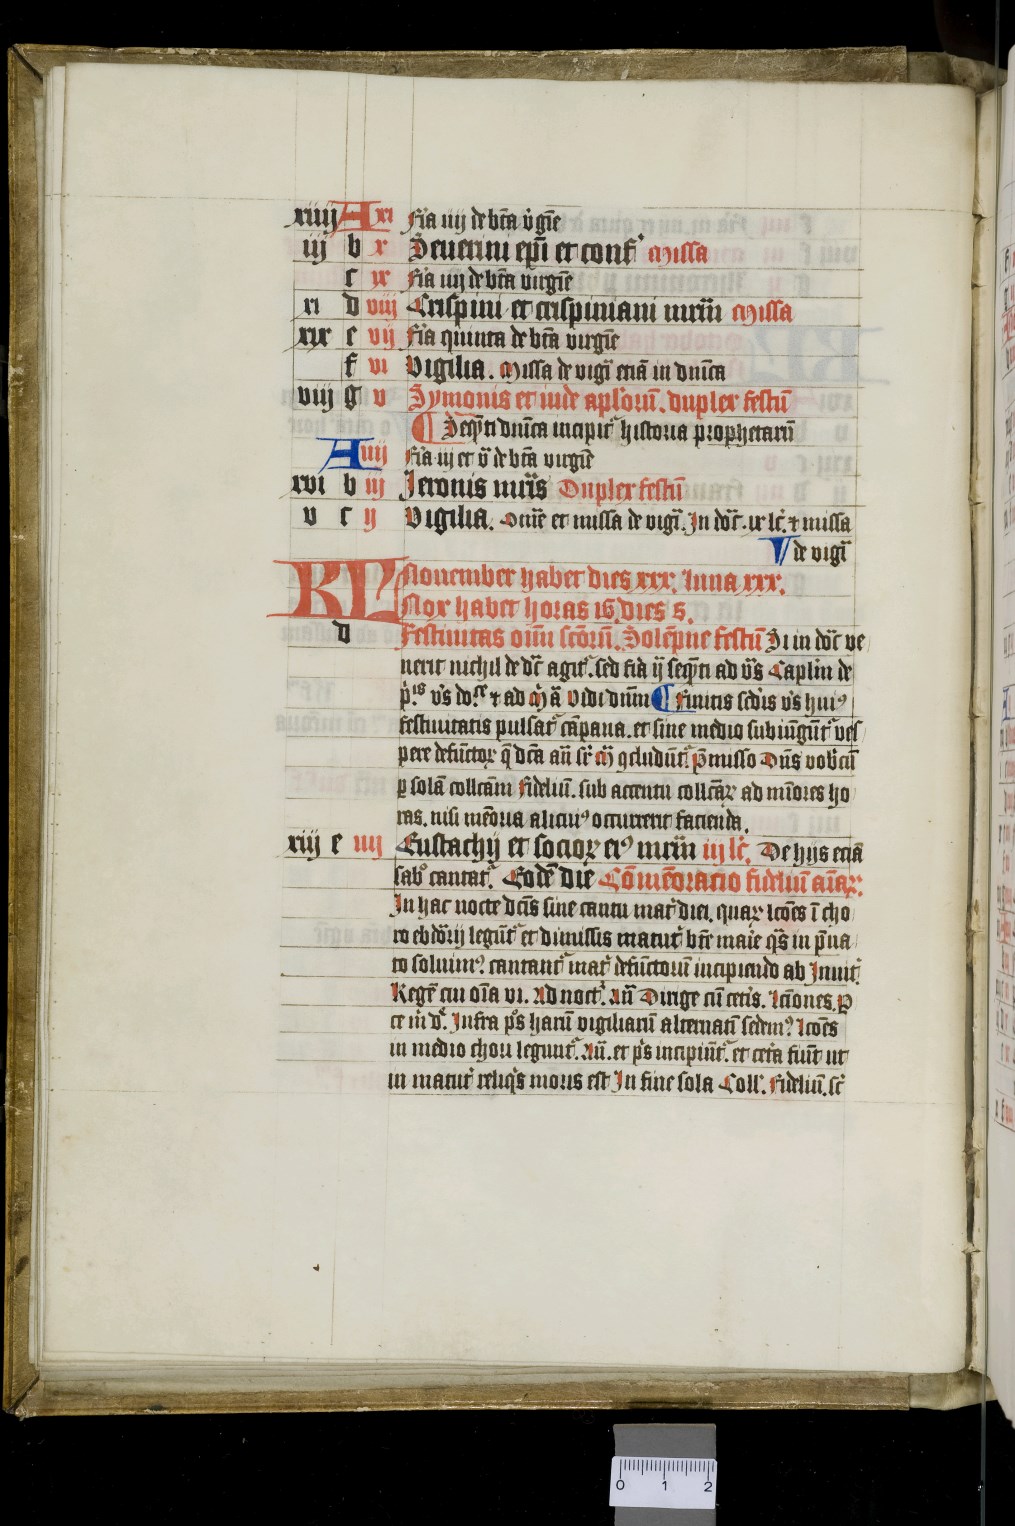 xiiij A xi f̄ia iiij de bt̄a v̓gīe
iij b x Seuerini ep̄i et conf̓ Missa
c ix f̄ia iiij de bt̄a virgīe
xi d viij Crispini et crispiniani mr̄m Missa
xix e vij f̄ia quinta de bt̄a virgīe
f vi Vigilia. Missa de vigi̓ etiā in dn̄ica
viij g v Symonis et iude apl̓orū. duplex festū
¶ Seqn̄ti dn̄ica incipit̓ historia prophetarū
A iiij f̄ia iij et v̓ de bt̄a virgīe
xvi b iij Ieronis mr̄is Duplex festū
v c ij Vigilia. Om̄e et missa de vigi̓. In do̓c̓ .ix lc̓. ⁊ missa
de vigi̓
KL Nouember habet dies xxx. luna xxx.
Nox habet horas 16. dies 8.
d Festiuitas oīm sc̄orū. Solēpne festū Si in do̓c̓ ve
nerit nichil de do̓c̓ agit̓. sed fi̓a ij seqn̄ti ad vs̓ Caplm̄ de
p̓is vs̓ do.̓ ⁊ ad M̓ a̓ Vidi dn̄m ¶ Finitis scd̓is vs̓ hui⁹
festiuitatis pulsat̓ cāpana. et sine medio subiūgūt̓ ves
pere defūctoꝝ q̄ dc̄a an̄ sr̓ M̓ ꝯcludūt̓. p̄misso Dn̄s vobc̄ū
ꝑ solā collcām Fideliū. sub accentu collc̄aꝝ ad mīores ho
ras. nisi mēoria alicui⁹ occurrerit facienda.
xiij e iiij Eustachij et socioꝝ ei⁹ mr̄m iij lc̓. De hijs etiā
sabb̓o cantat̓. Eodē die Cōmēoratio fideliū aīaꝝ.
In hac nocte dc̄is sine cantu mat̓ diei. quaꝝ lcōes ī cho
ro ebdo̓rij legūt̓ et dimissis matut̓ bt̄e marie qs̓ in p̄ua
to soluim⁹. cantant̓ mat̓ defūctorū incipiendo ab Inuit̓
Regē cui oīa vi. Ad noct̓. An̄ Dirige cū cet̓is. lcīones. P
ce m̓ d̓. Infra ps̓ harū vigiliarū alternatī sedem⁹. lcōes
in medio chori legunt̓. An̄. et ps̓ incipiūt̓. et cet̓a fiūt ut
in matut̓ reliqs̓ moris est In fine sola Coll̓. Fideliū. sc̓